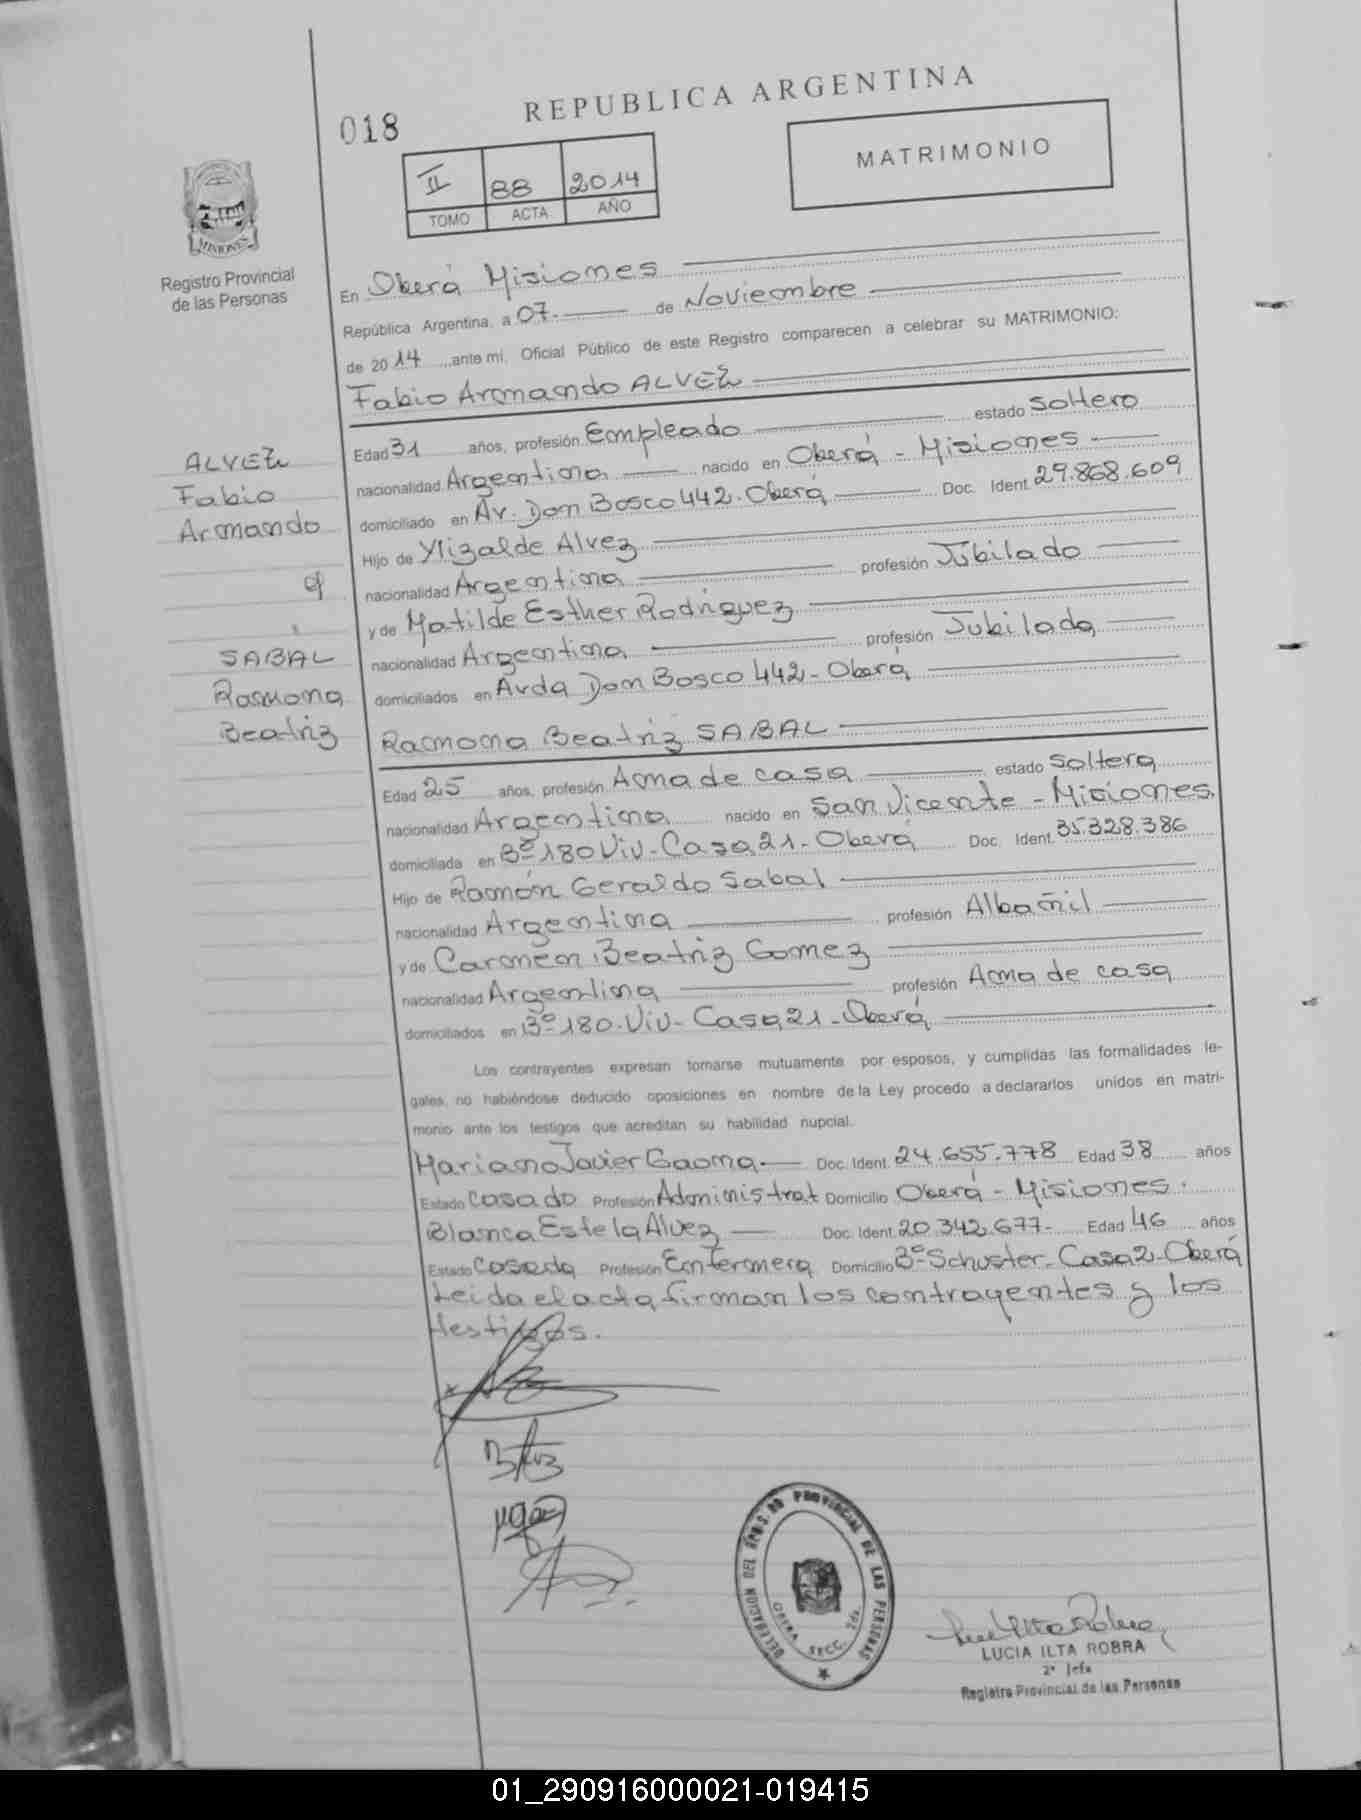 REPUBLICA ARGENTINA
018
MATRIMONIO
II 88 2014
TOMO ACTA AÑO
MISIONES
Registro Provincial
de las Personas
En Oberá Misiones
República Argentina, a 07.- de Noviembre
de 2014 ante mí, Oficial Público de este Registro comparecen a celebrar su MATRIMONIO:
Fabio Armando ALVEZ
Edad 31 años, profesión Empleado estado Soltero
nacionalidad Argentina nacido en Oberá - Misiones
domiciliado en Av. Don Bosco 442. Oberá Doc. Ident. 29.868.609
Hijo de Ylizalde Alvez
nacionalidad Argentina profesión Jubilado
y de Matilde Esther Rodriguez
nacionalidad Argentina profesión Jubilada
domiciliados en Avda Don Bosco 442- Oberá
ALVEZ
Fabio
Armando
SABAL
Ramona
Beatriz
Ramona Beatriz SABAL
Edad 25 años, profesión Ama de casa estado Soltera
nacionalidad Argentina nacido en San Vicente - Misiones.
domiciliada en Bº 180 Viv- Casa 21- Oberá Doc. Ident. 35.328.386
Hijo de Ramón Geraldo Sabal
nacionalidad Argentina profesión Albañil
y de Carmen Beatriz Gomez
nacionalidad Argentina profesión Ama de casa
domiciliados en Bº 180. Viv- Casa 21- Oberá
Los contrayentes expresan tomarse mutuamente por esposos, y cumplidas las formalidades le-
gales, no habiéndose deducido oposiciones en nombre de la Ley procedo a declararlos unidos en matri-
monio ante los testigos que acreditan su habilidad nupcial.
Mariano Javier Gaona.- Doc. Ident. 24.655.778 Edad 38 años
Estado Casado Profesión Administrat Domicilio Oberá - Misiones.
Blanca Estela Alvez Doc. Ident. 20.342.677- Edad 46 años
Estado Casada Profesión Enfermera Domicilio Bº Schuster- Casa 2- Oberá
Leida el acta firman los contrayentes y los
testigos.
DELEGACION DEL REGS. DO PROVINCIAL DE LAS PERSONAS
OBERA SECC. 2da.
LUCIA ILTA ROBRA
2º Jefe
Registro Provincial de las Personas
01_290916000021-019415